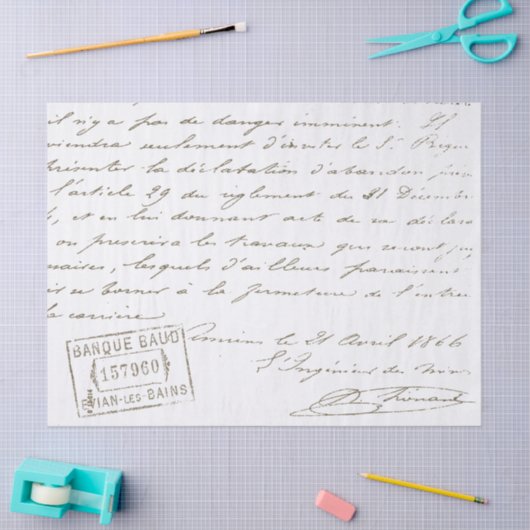 il n'y a pas de danger imminent. Il
viendra seulement d'inviter le Sr
présenter la déclaration d'abandon
l'article 29 du règlement du 31 Décemb
et en lui donnant acte de sa déclara
on prescrira les travaux qui seront
saires, lesquels d'ailleurs paraissent
se borner à la fermeture de l'entrée
la carrière
Amiens le 21 Avril 1866
L'Ingénieur des Mines
BANQUE BAUD
157960
VIAN-LES-BAINS